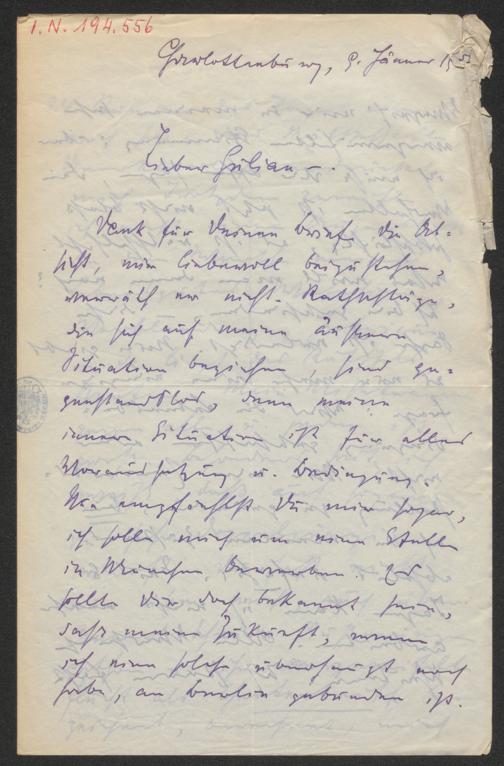 I. N. 194.556
Charlottenburg, 9. Jänner 15
Lieber Julian –.
Dank für Deinen Brief. Die Ab=
sicht, mir liebevoll beizustehen,
verräth er nicht. Rathschläge,
die sich auf meine äußere
Situation beziehen, sind ge=
genstandslos, denn meine
innere Situation ist für alles
Voraussetzung u. Bedingung.
empfiehlst Du mir sogar,
ich solle mich um eine Stelle
in München bewerben. Es
sollte Dir doch bekannt sein,
daß meine Zukunft, wenn
ich eine solche überhaupt noch
habe, an Berlin gebunden ist.